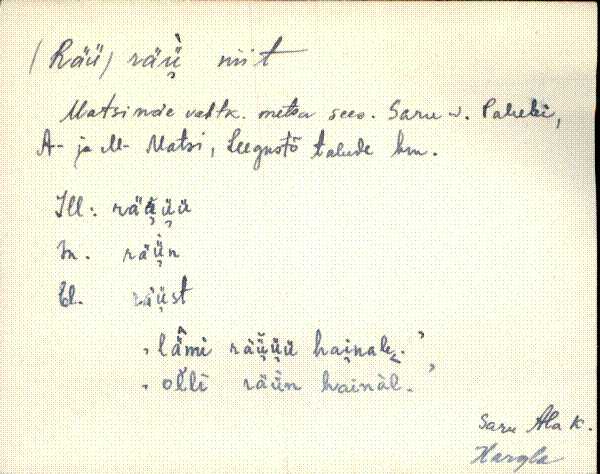 (Räü) räǜ̬ niit
Matsimäe vahtk. metsa sees. Saru v. Paluki,
A- ja M- Matsi, Leegustõ talude hm.
Ill: räü̬ü̬ü
In. räǜ̬n
El. räü̬st
, lä̬mi räü̬ü̬ü hai̬nalȩ. ʼ
, ol̆li räǜ̬n hainàl. ʼ
Saru Ala k.
Hargla